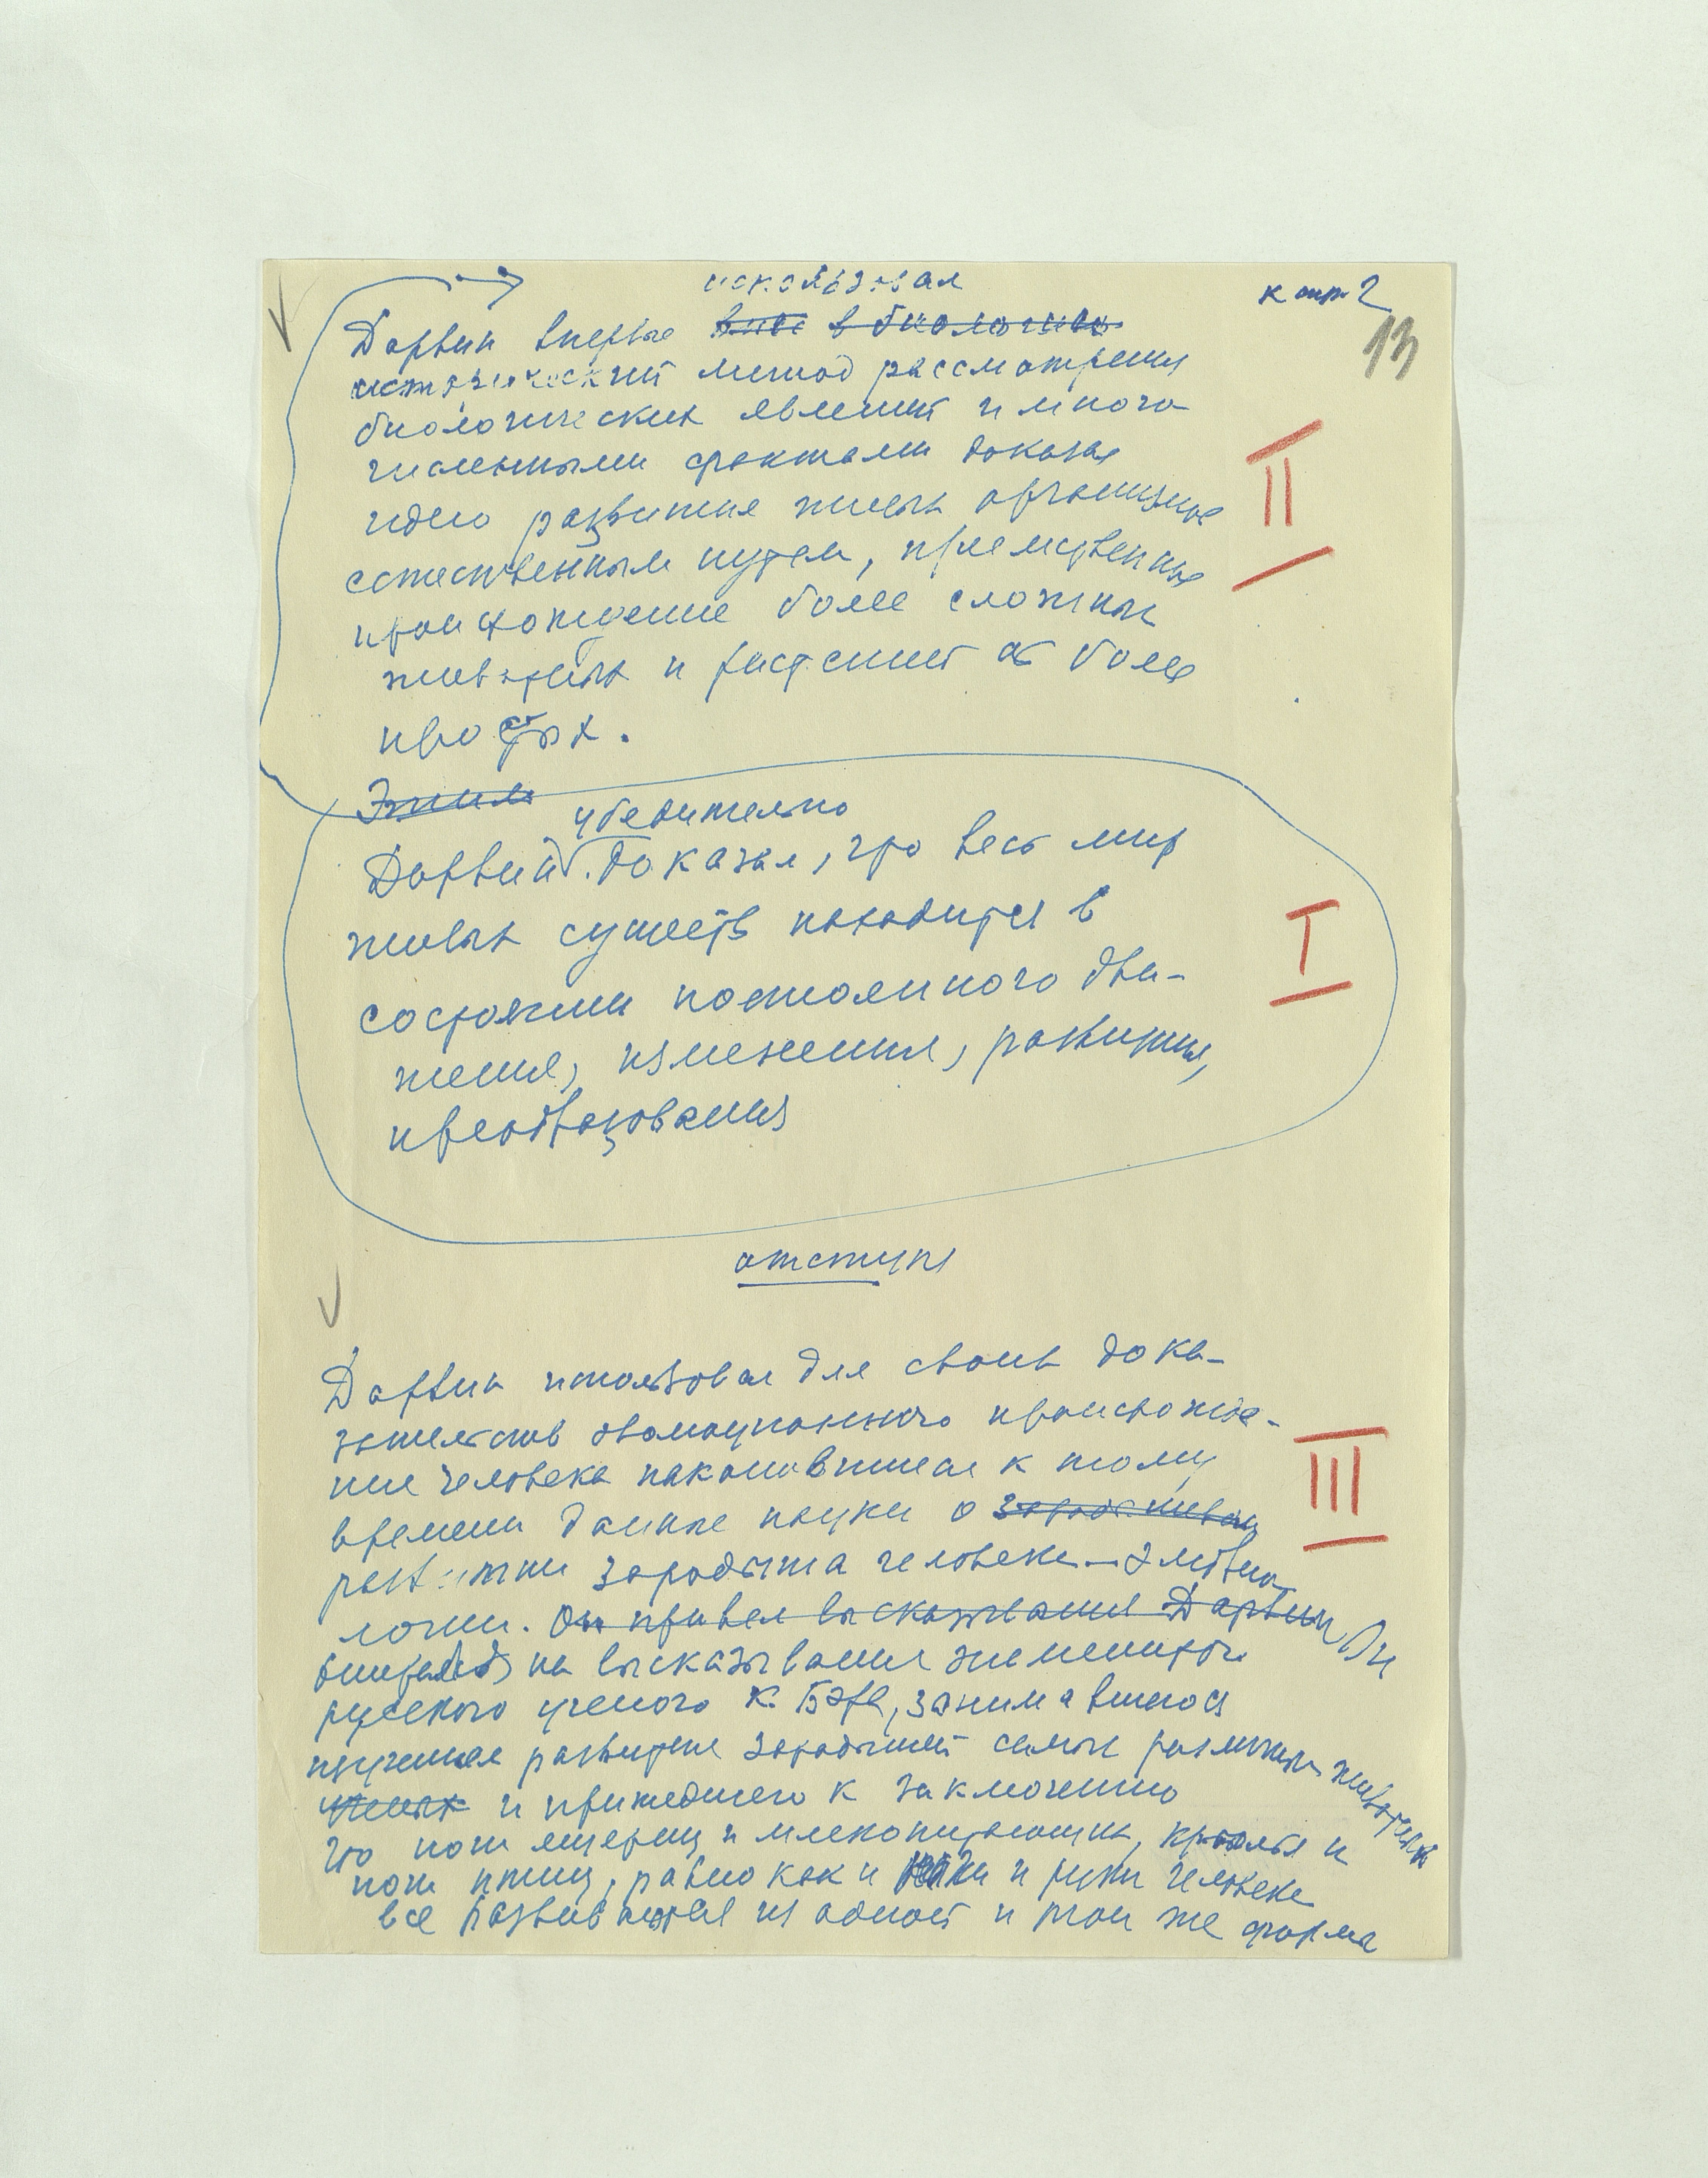 использовал
к стр. 2
13
Дарвин впервые внес в биологию
исторический метод рассмотрения
биологических явлений и много-
численными фактами доказал
идею развития живых организмов
естественным путем, преемственное
происхождение более сложных
животных и растений от более
простых.
II
Этим
убедительно
Дарвин доказал, что весь мир
живых существ находится в
состоянии постоянного дви-
жения, изменения, развития,
преобразования
I
отступ
Дарвин использовал для своих дока-
зательств эволюционного происхожде-
ния человека накопившиеся к тому
времени данные науки о зародышевом
развитии зародыша человека — эмбрио-
логии. Он привел высказывания Дарвин Он
опирался на высказывания знаменитого
русского ученого К. Бэра, занимавшегося
изучением развития зародышей самых различных животных
ученых и пришедшего к заключению
что ноги ящериц и млекопитающих, крылья и
ноги птиц, равно как и ноги и руки человека
все развиваются из одной и той же формы
III